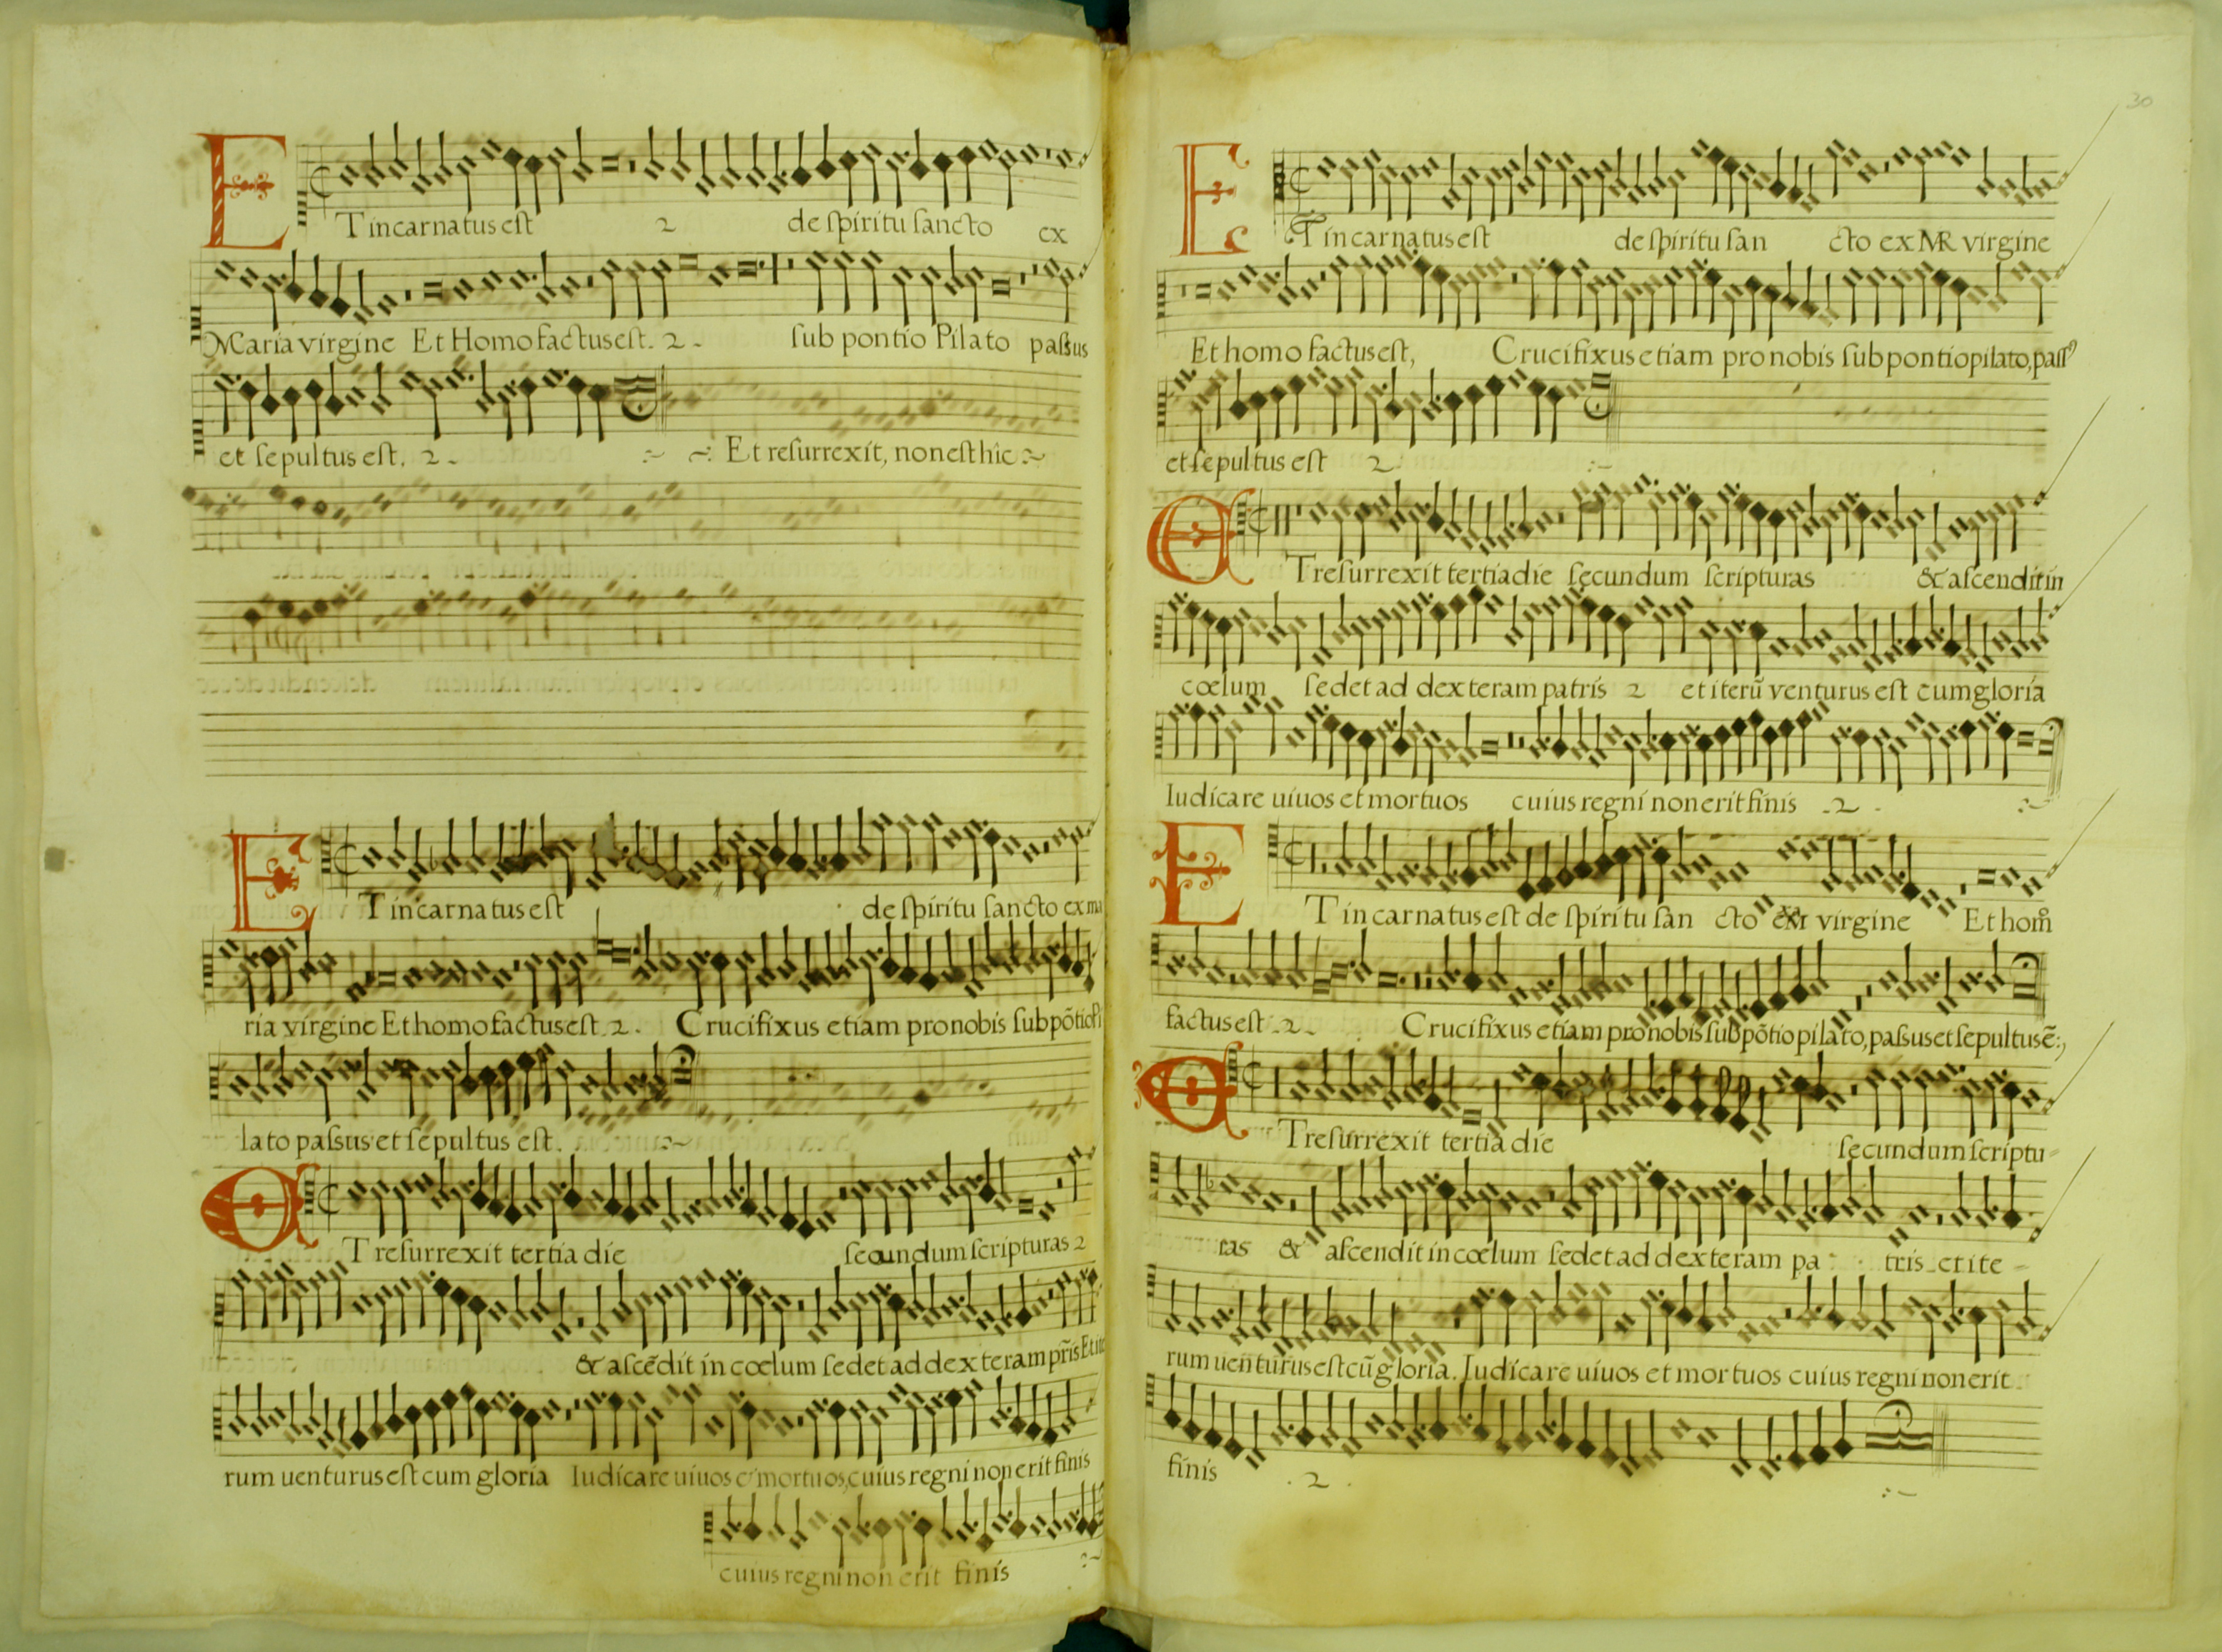 ET incarnatus est 2 de spiritu sancto ex
Maria virgine Et Homo factus est. 2. sub pontio Pilato passus
et sepultus est. 2. Et resurrexit, non est hic
ET incarnatus est de spiritu sancto ex ma
ria virgine Et homo factus est 2. Crucifixus etiam pro nobis sub põtio Pi
lato passus et sepultus est.
ET resurrexit tertia die secundum scripturas 2
& ascẽdit in cœlum sedet ad dexteram pr̃is Et ite
rum uenturus est cum gloria Iudicare uiuos et mortuos, cuius regni non erit finis
cuius regni non erit finis
30
ET incarnatus est de spiritu san cto ex MR virgine
Et homo factus est, Crucifixus etiam pro nobis sub pontio pilato, pass9
et sepultus est 2.
ET resurrexit tertia die secundum scripturas & ascendit in
cœlum sedet ad dexteram patris 2 et iterũ venturus est cum gloria
Iudicare uiuos et mortuos cuius regni non erit finis .2.
ET incarnatus est de spiritu san cto ex M virgine Et hom̊
factus est .2. Crucifixus etiam pro nobis sub põtio pilato, passus et sepultus ẽ
ET resurrexit tertia die secundum scriptu-
ras & ascendit in cœlum sedet ad dexteram pa tris et ite-
rum uenturus est cũ gloria. Iudicare uiuos et mortuos cuius regni non erit
finis .2.